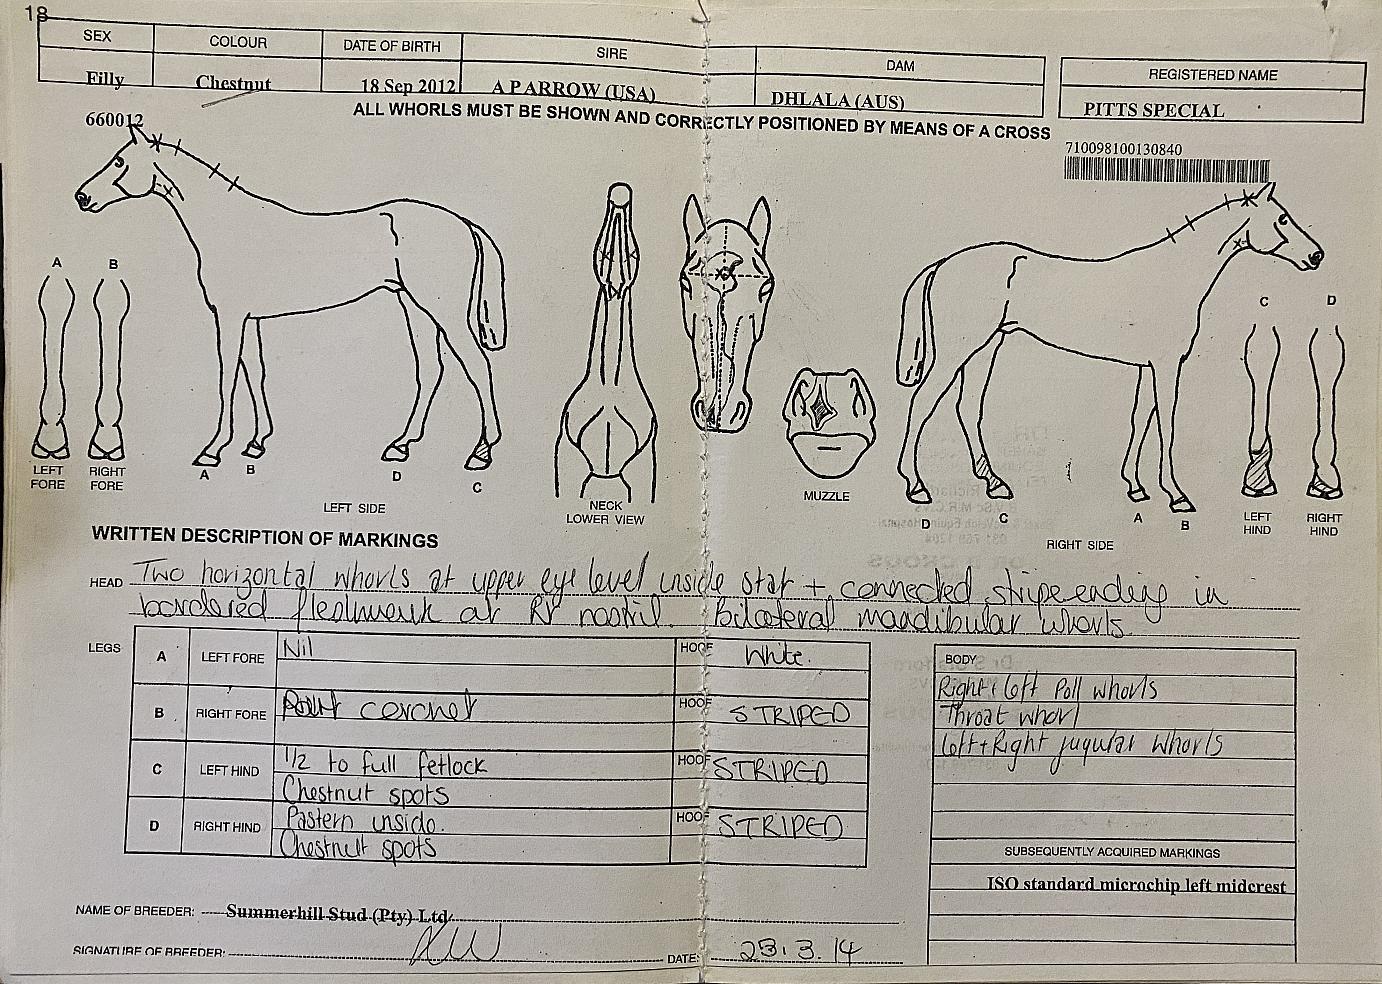 18
SEX COLOUR DATE OF BIRTH SIRE DAM REGISTERED NAME
Filly Chestnut 18 Sep 2012 A P ARROW (USA) DHLALA (AUS) PITTS SPECIAL
ALL WHORLS MUST BE SHOWN AND CORRECTLY POSITIONED BY MEANS OF A CROSS
660012
710098100130840
A B
C D
LEFT FORE RIGHT FORE
A B D C
LEFT SIDE
NECK LOWER VIEW
MUZZLE
D C A B
RIGHT SIDE
LEFT HIND RIGHT HIND
WRITTEN DESCRIPTION OF MARKINGS
HEAD Two horizontal whorls at upper eye level inside star + connected stripe ending in
bordered fleshmark at Rt nostril. Bilateral mandibular whorls.
LEGS
A LEFT FORE Nil HOOF White.
B RIGHT FORE coronet HOOF STRIPED
C LEFT HIND 1/2 to full fetlock HOOF STRIPED
Chestnut spots
D RIGHT HIND Pastern inside. HOOF STRIPED
Chestnut spots
BODY
Right + left Poll whorls
Throat whorl
Left + Right jugular whorls
SUBSEQUENTLY ACQUIRED MARKINGS
ISO standard microchip left midcrest
NAME OF BREEDER: Summerhill Stud (Pty) Ltd.
SIGNATURE OF BREEDER: DATE: 23.3.14